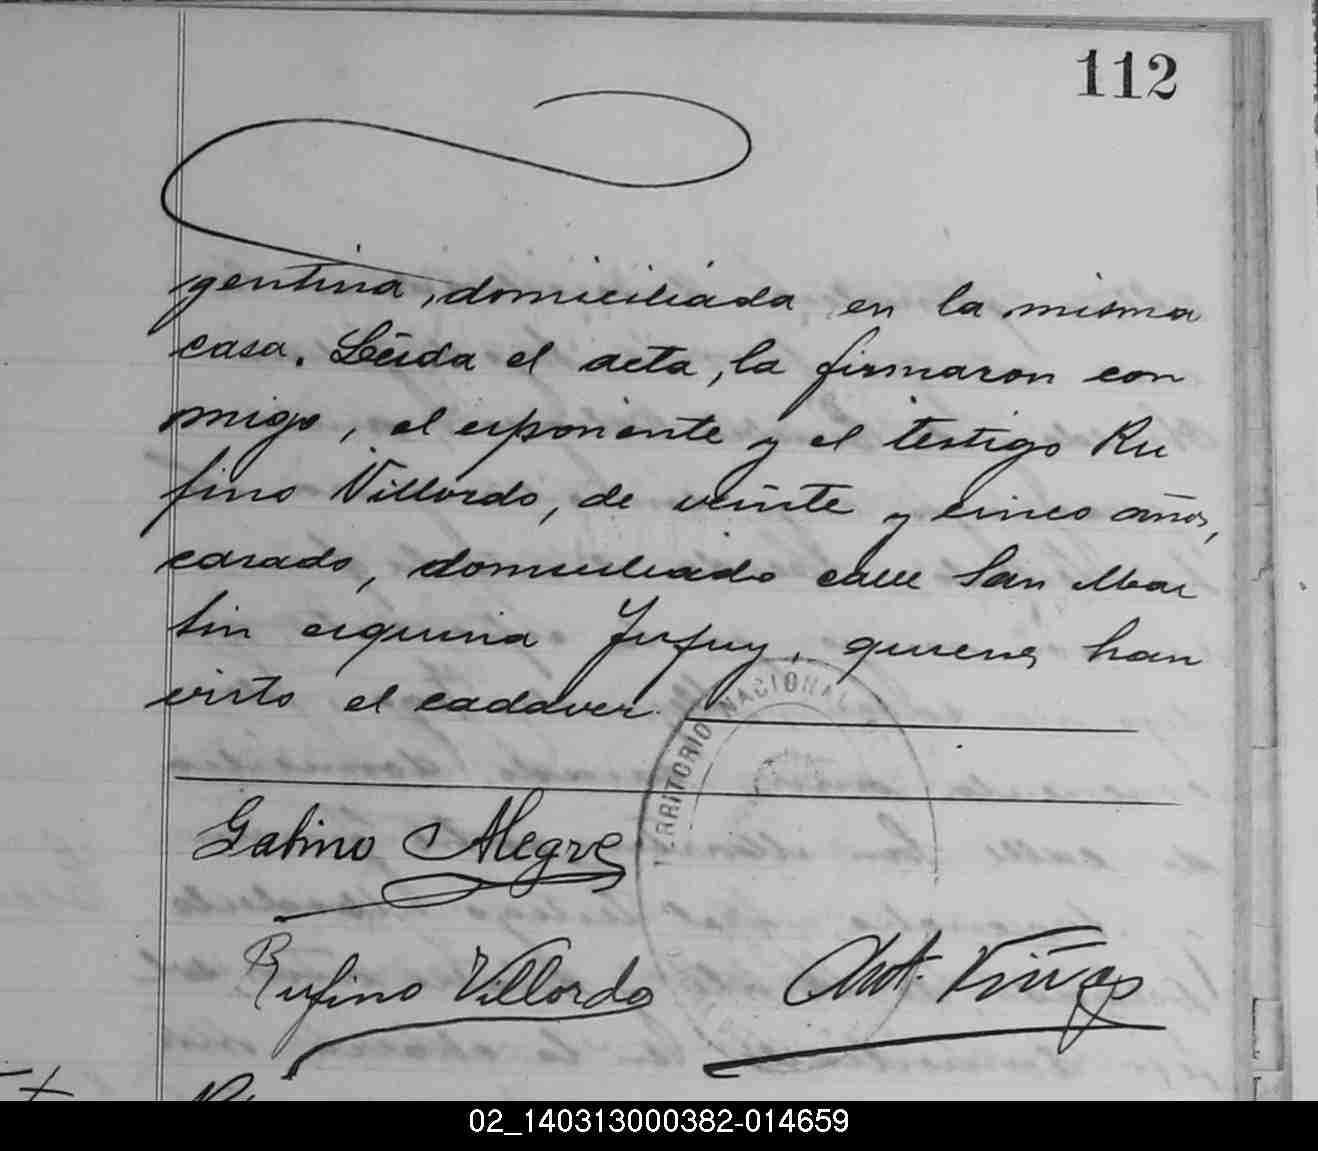 112
gentina, domiciliada en la misma
casa. Leida el acta, la firmaron con
migo, el exponente y el testigo Ru
fino Villordo, de veinte y cinco años,
casado, domiciliado calle San Mar
tin esquina Jujuy, quienes han
visto el cadaver.
TERRITORIO NACIONAL
Gabino Alegre
Rufino Villordo
Ant. Viñas
02_140313000382-014659